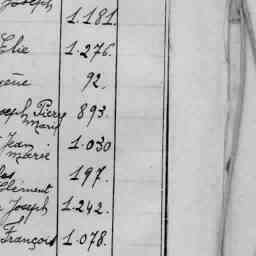 Joseph
1.181.
Elie
1.276.
92.
Joseph Pierre 893.
Marie
Jean 1.030
Marie
197.
Clément
Joseph 1.242.
François 1.078.